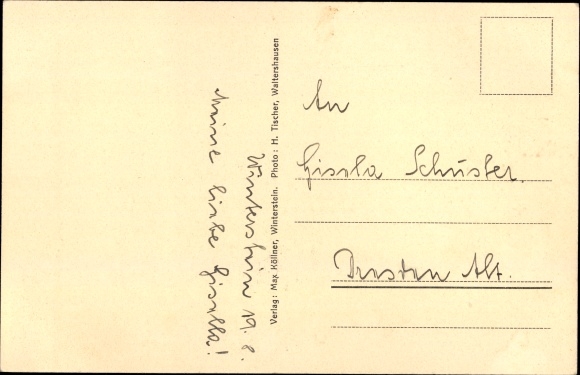 Winterstein 19. 8.
Meine liebe Gisella!
Verlag: Max Köllner, Winterstein. Photo: H. Tischer, Waltershausen
An
Gisela Schuster.
Dresden Alt.